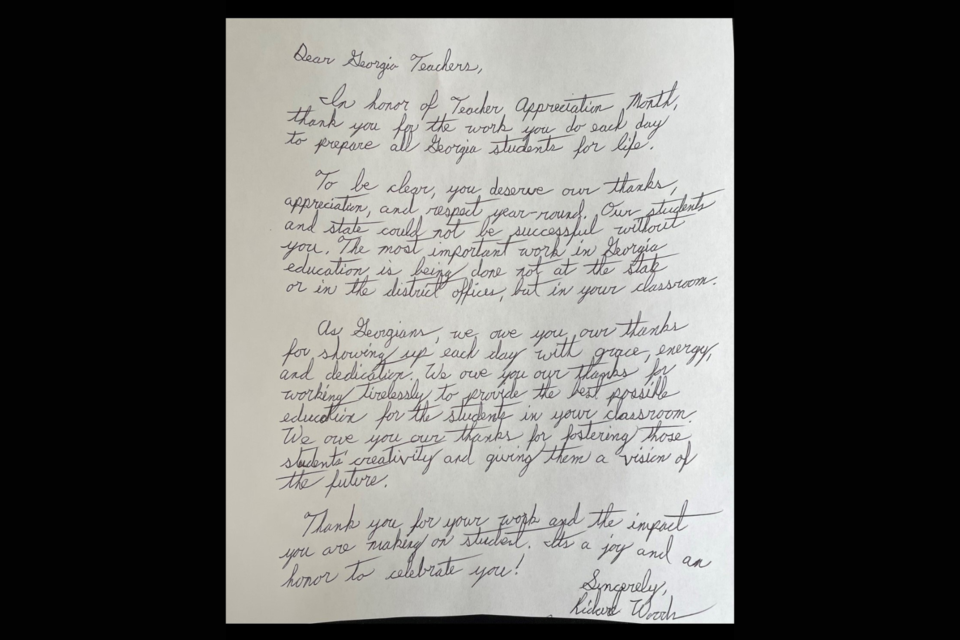 Dear Georgia Teachers,
In honor of Teacher Appreciation Month,
thank you for the work you do each day
to prepare all Georgia students for life.
To be clear, you deserve our thanks,
appreciation, and respect year-round. Our students
and state could not be successful without
you. The most important work in Georgia
education is being done not at the state
or in the district offices, but in your classroom.
As Georgians, we owe you our thanks
for showing up each day with grace, energy,
and dedication. We owe you our thanks for
working tirelessly to provide the best possible
education for the students in your classroom.
We owe you our thanks for fostering those
students' creativity and giving them a vision of
the future.
Thank you for your work and the impact
you are making on student. Its a joy and an
honor to celebrate you!
Sincerely,
Richard Woods